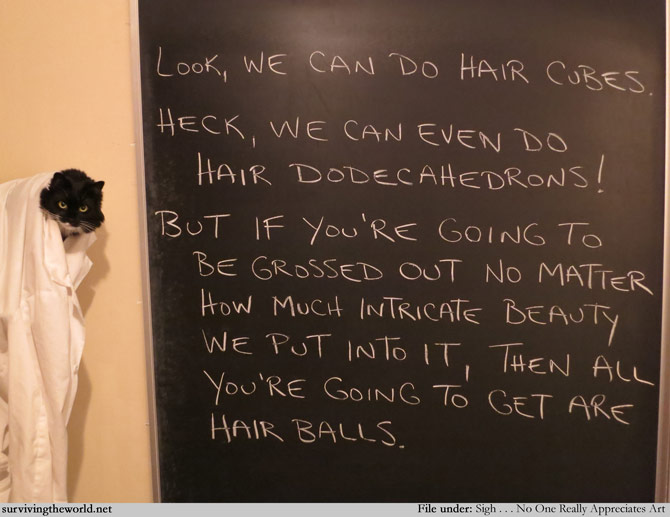 LOOK, WE CAN DO HAIR CUBES.
HECK, WE CAN EVEN DO
HAIR DODECAHEDRONS!
BUT IF YOU'RE GOING TO
BE GROSSED OUT NO MATTER
HOW MUCH INTRICATE BEAUTY
WE PUT INTO IT, THEN ALL
YOU'RE GOING TO GET ARE
HAIR BALLS.
survivingtheworld.net File under: Sigh . . . No One Really Appreciates Art